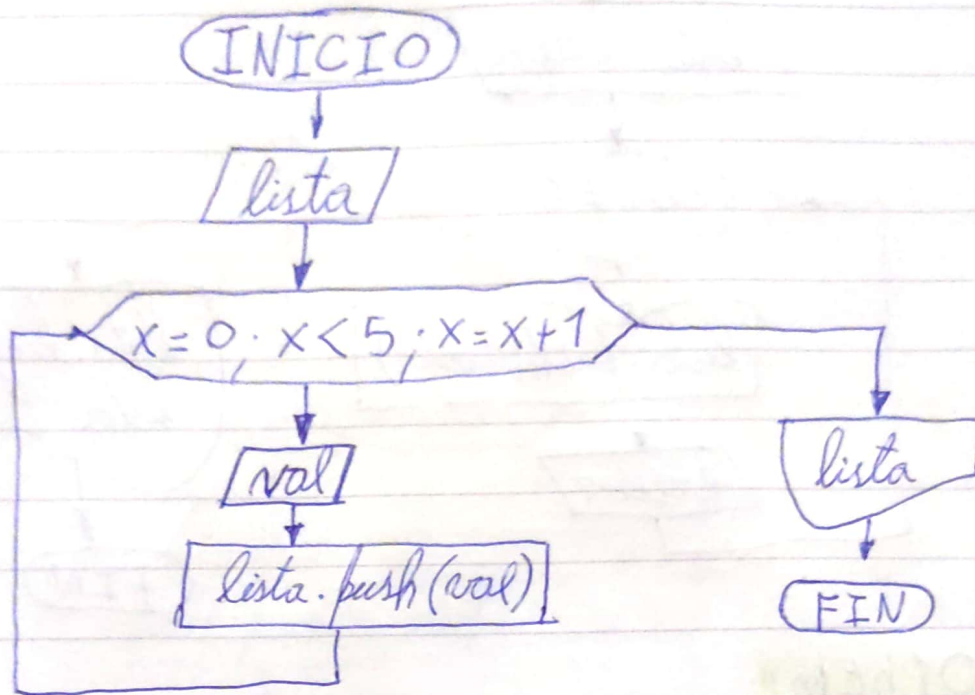 INICIO
lista
x=0; x<5; x=x+1
val
lista.push(val)
lista
FIN